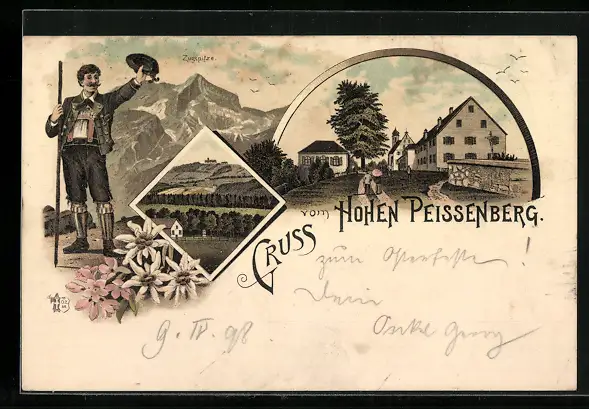 Zugspitze
Gruss vom Hohen Peissenberg.
zum Osterfeste!
Dein
Onkel Georg
9. IV. 98